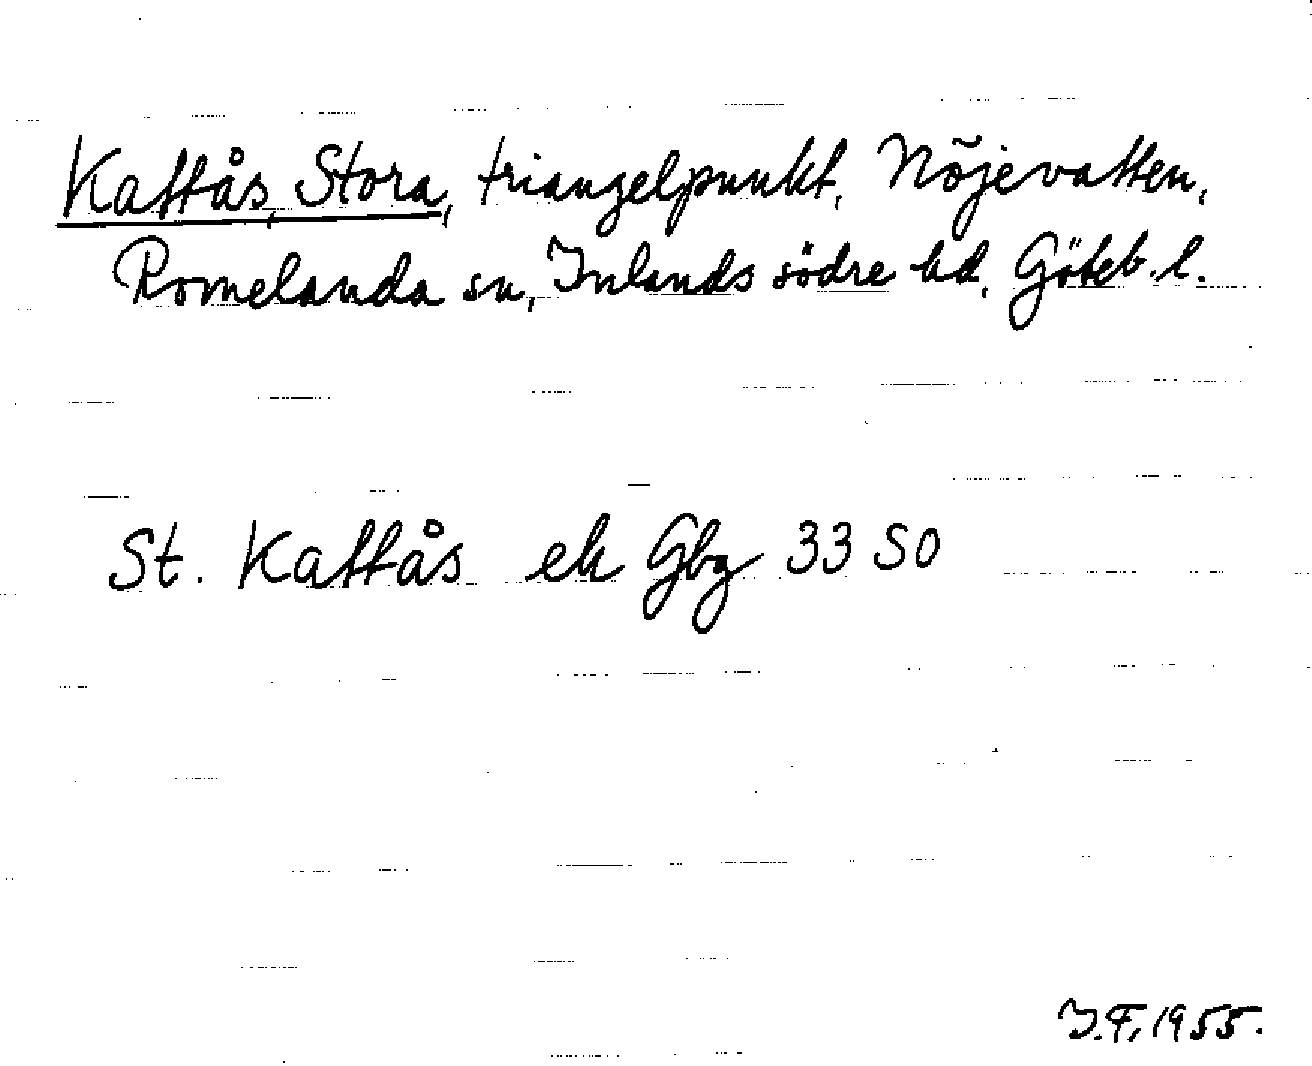 Kattås, Stora, triangelpunkt, Nöjevatten,
Romelanda sn, Inlands södre hd, Göteb. l.
St. Kattås ek Gbg 33 SO
I.F, 1955.